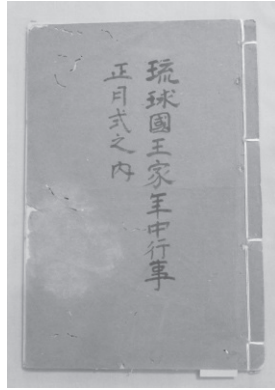 琉球國王家年中行事
正月式之内